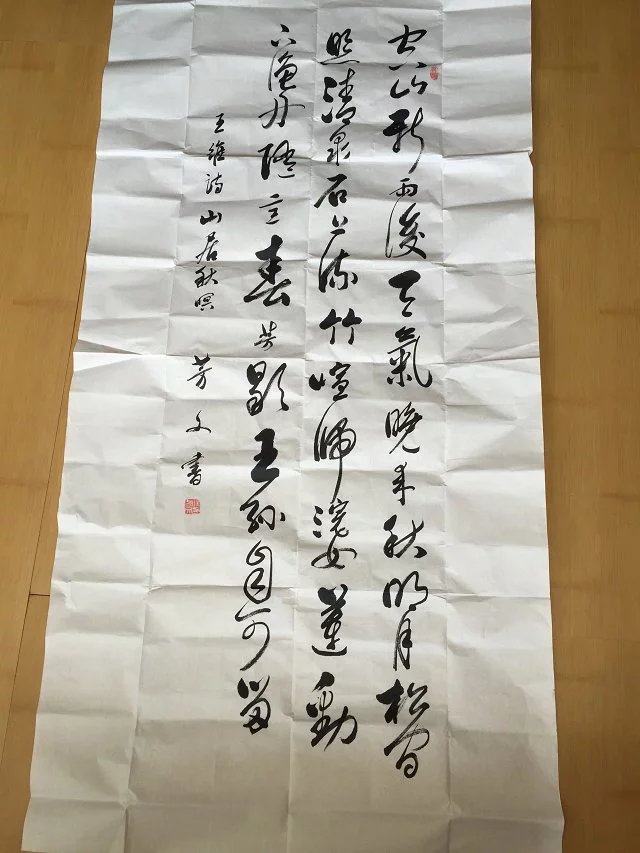 空山新雨後天氣晚来秋明月松間
照清泉石上流竹喧歸浣女蓮動
下漁舟隨意春芳歇王孫自可留
王維詩山居秋暝 芳文書